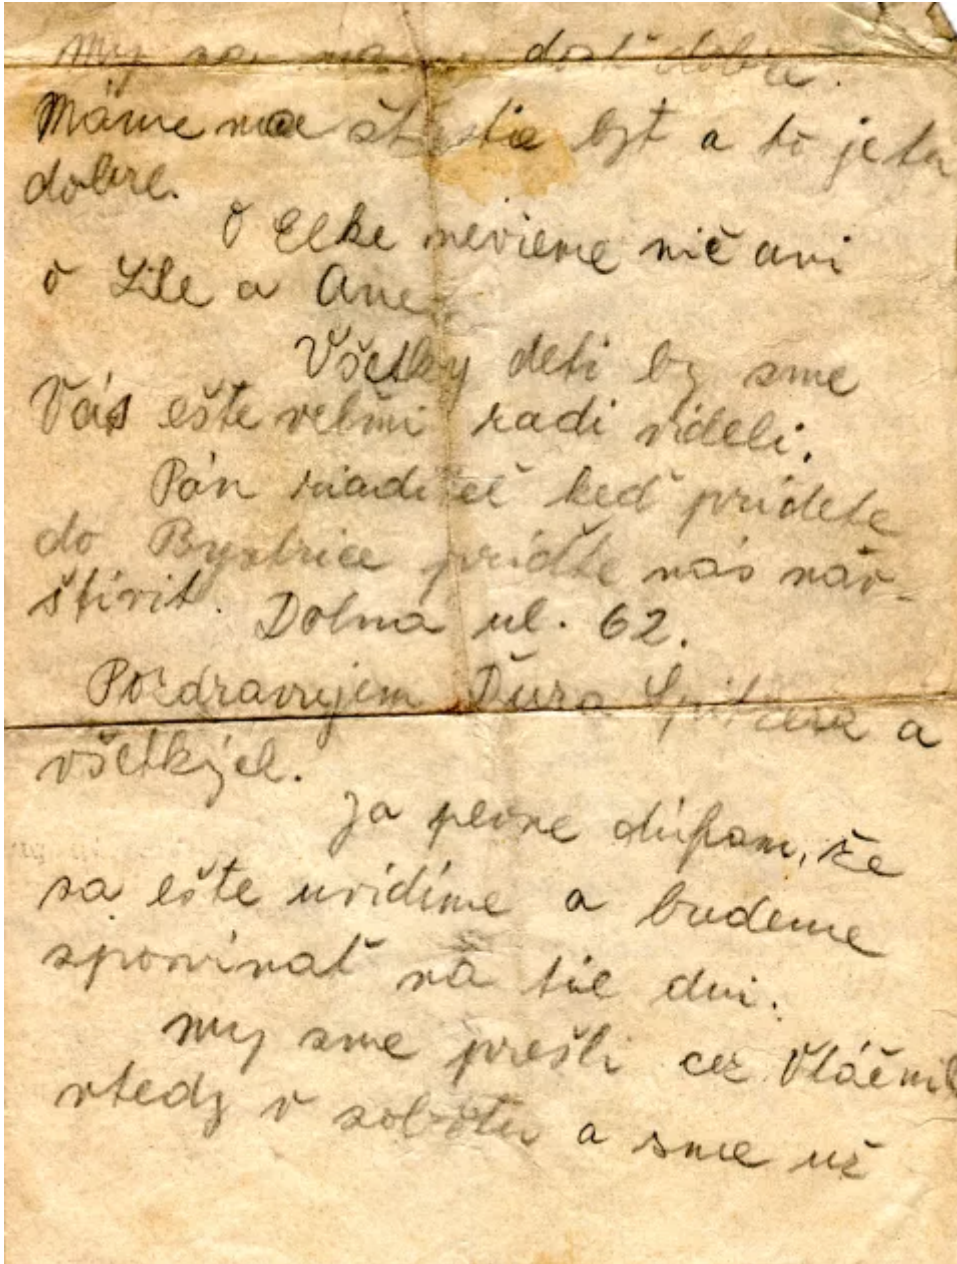 My sa máme dosť dobre.
Máme na šťastie byt a to je ten
dobre.
O Elke nevieme nič ani
o Lile a Ane
Všetky deti by sme
Vás ešte veľmi radi videli.
Pán riaditeľ keď prídete
do Bystrice príďte nás nav-
štíviť. Dolna ul. 62.
Pozdravujem Ďura a
všetkých.
Ja pevne dúfam, že
sa ešte uvidíme a budeme
spomínať na tie dni.
My sme prešli cez
vtedy v sobotu a sme už